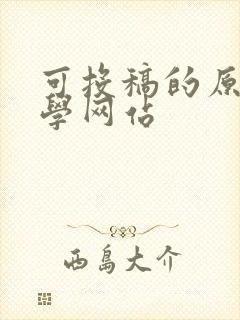 可投稿的原
學网佔
西島大介